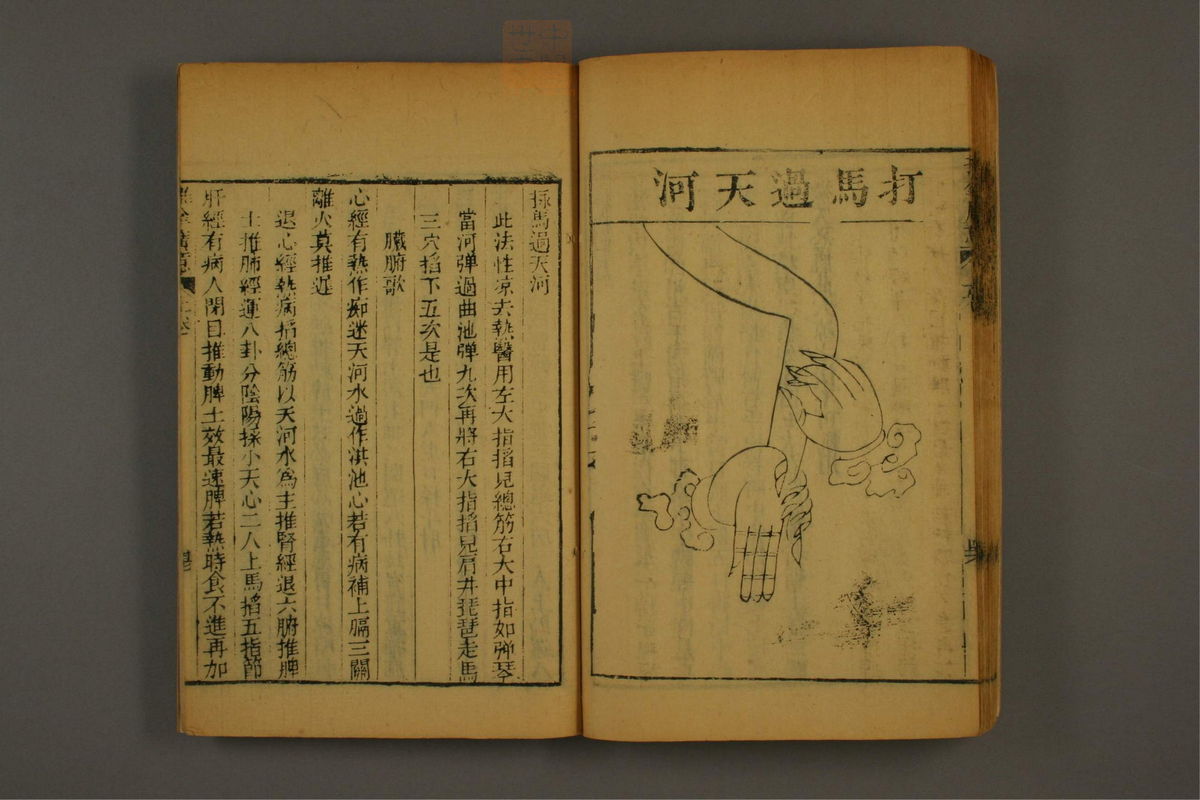 打馬過天河
揉馬過天河
此法性凉去熱醫用左大指掐兒總筋右大中指如弹琴
當河弹過曲池弹九次再將右大指掐兒肩井琵琶走馬
三穴掐下五次是也
臟腑歌
心經有熱作痴迷天河水過作洪池心若有病補上膈三關
離火莫推遲
退心經熱病掐總筋以天河水爲主推腎經退六腑推脾
土推肺經運八卦分陰陽揉小天心二人上馬掐五指節
肝經有病人閉目推動脾土效最速脾若熱時食不進再加
推拿廣意
上卷